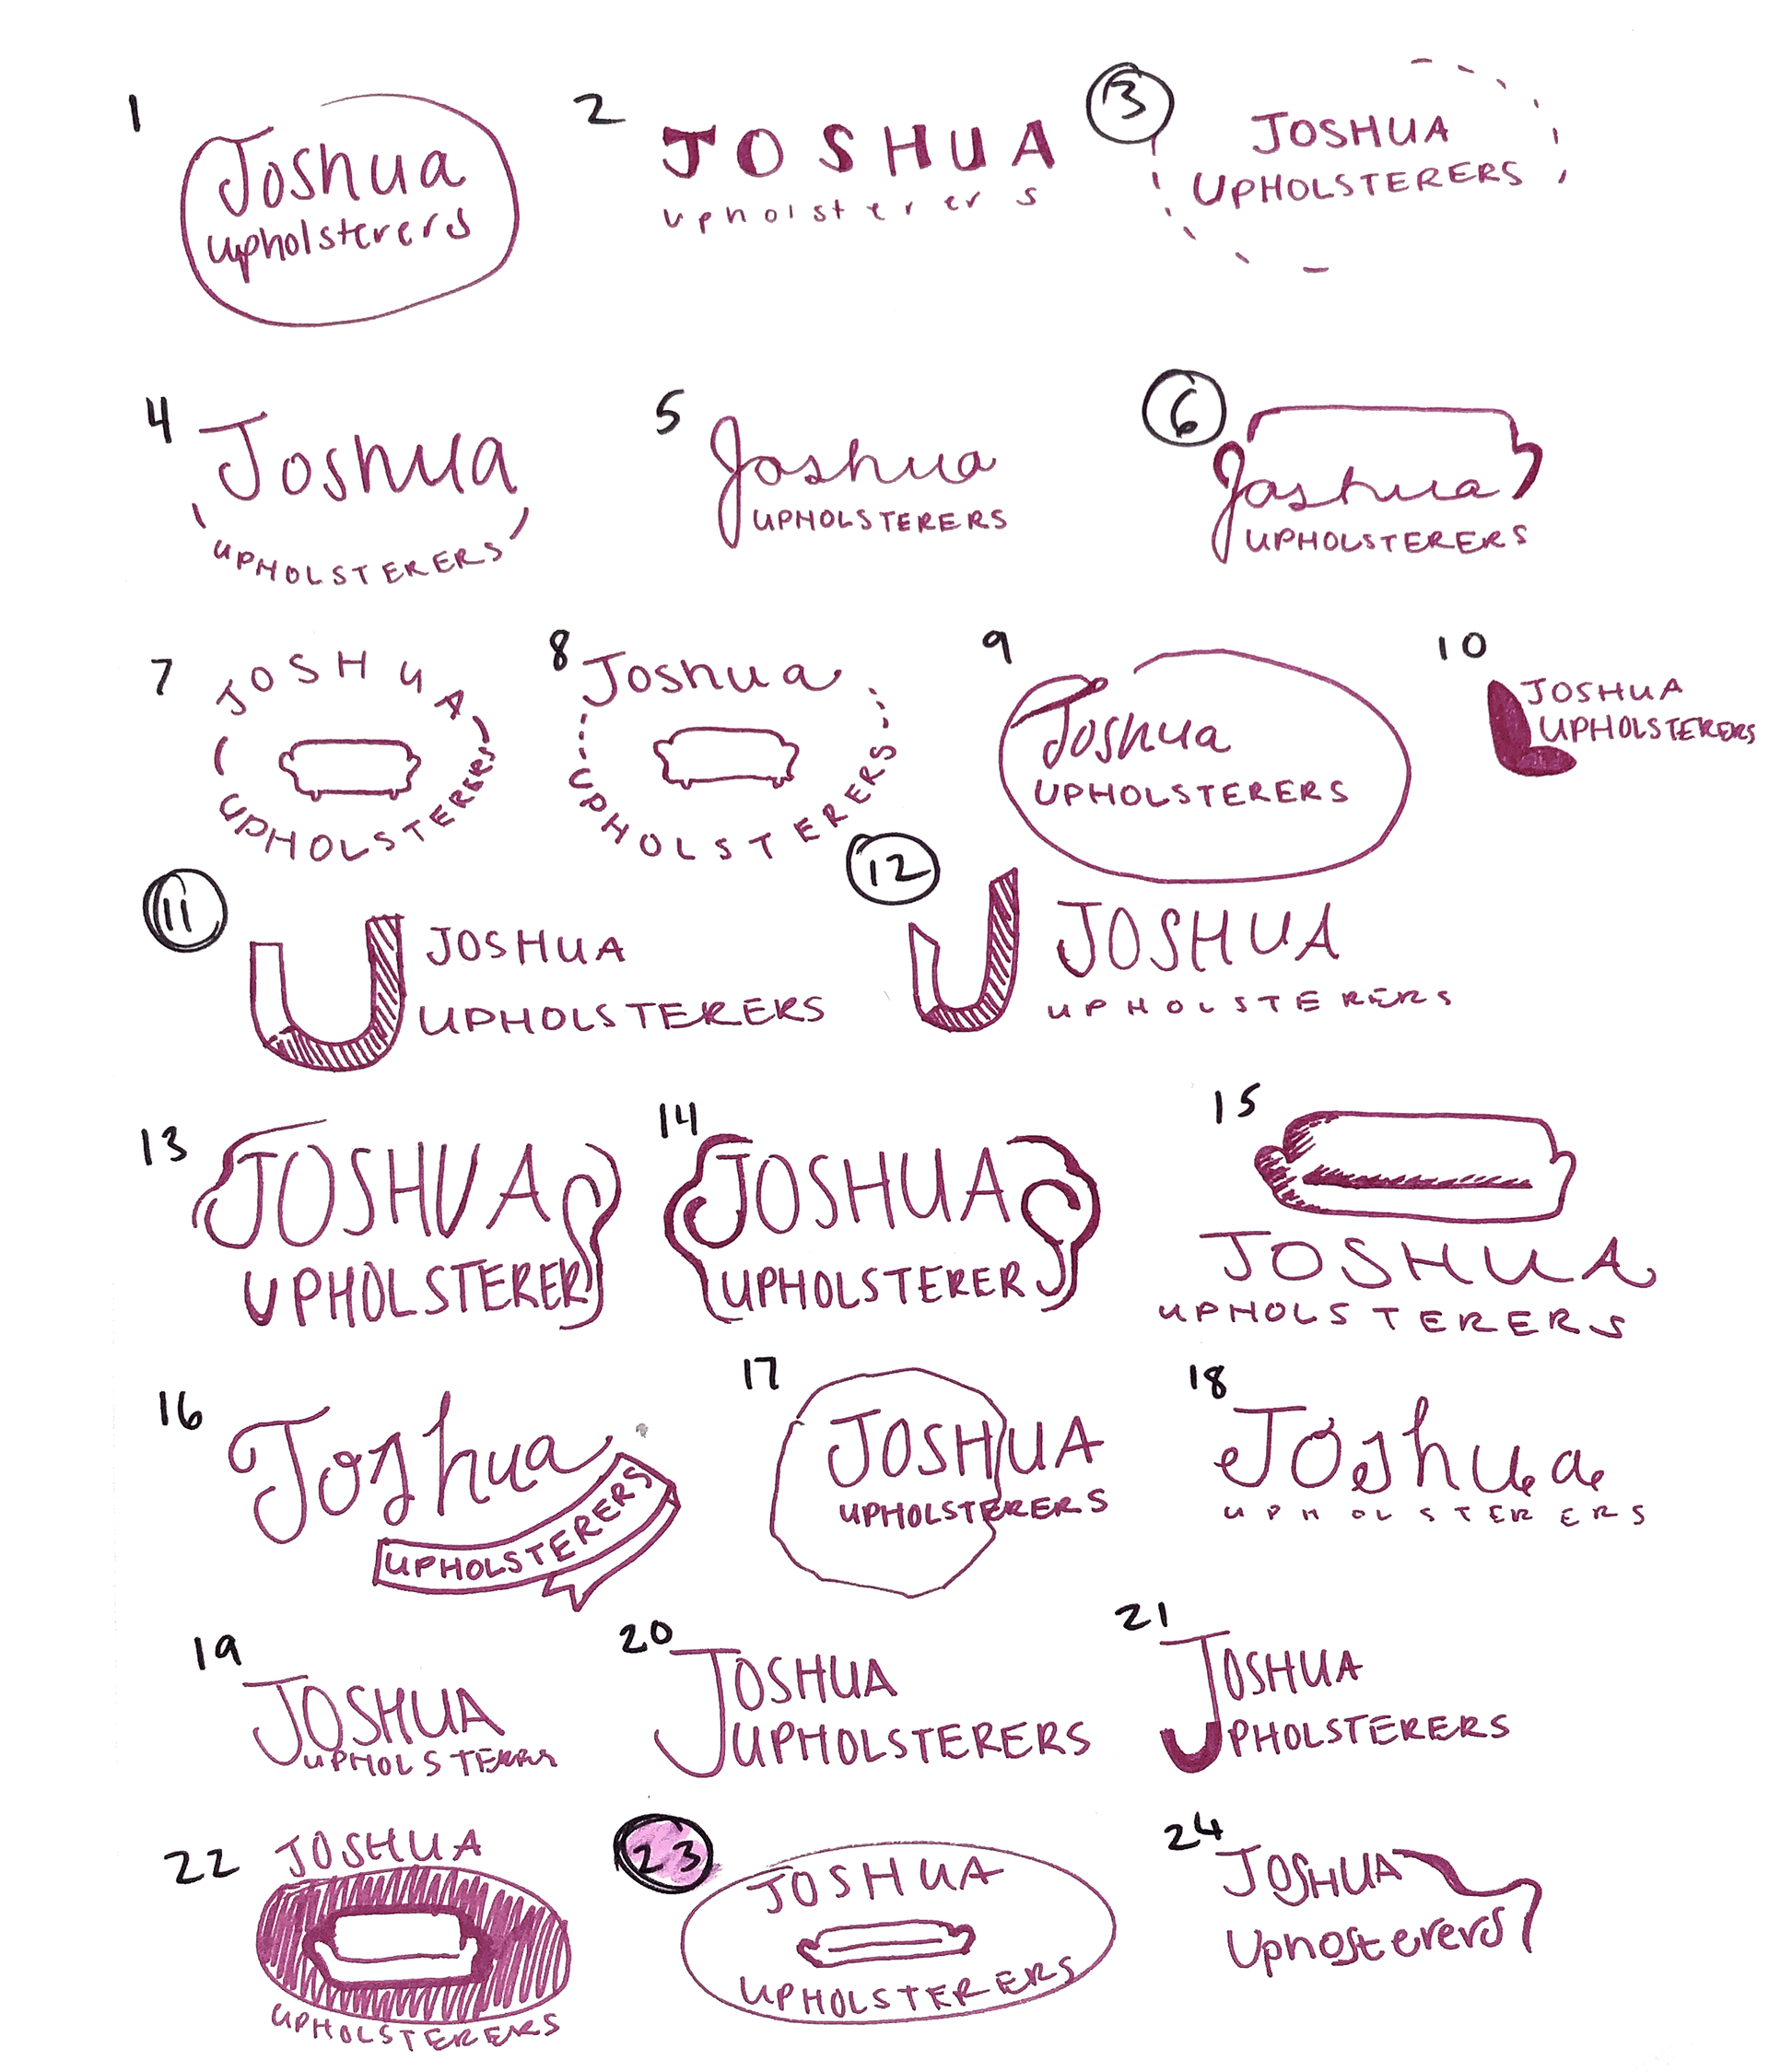 1
Joshua
upholsterers
2
JOSHUA
upholsterers
3
JOSHUA
UPHOLSTERERS
4
Joshua
UPHOLSTERERS
5
Joshua
UPHOLSTERERS
6
Joshua
UPHOLSTERERS
7
JOSHUA
UPHOLSTERERS
8
Joshua
UPHOLSTERERS
9
Joshua
UPHOLSTERERS
10
JOSHUA
UPHOLSTERERS
11
U JOSHUA
UPHOLSTERERS
12
U JOSHUA
UPHOLSTERERS
13
JOSHUA
UPHOLSTERERS
14
JOSHUA
UPHOLSTERERS
15
JOSHUA
UPHOLSTERERS
16
Joshua
UPHOLSTERERS
17
JOSHUA
UPHOLSTERERS
18
Joshua
UPHOLSTERERS
19
JOSHUA
20
JOSHUA
UPHOLSTERERS
21
JOSHUA
UPHOLSTERERS
22
JOSHUA
UPHOLSTERERS
23
JOSHUA
UPHOLSTERERS
24
JOSHUA
Uphosterers